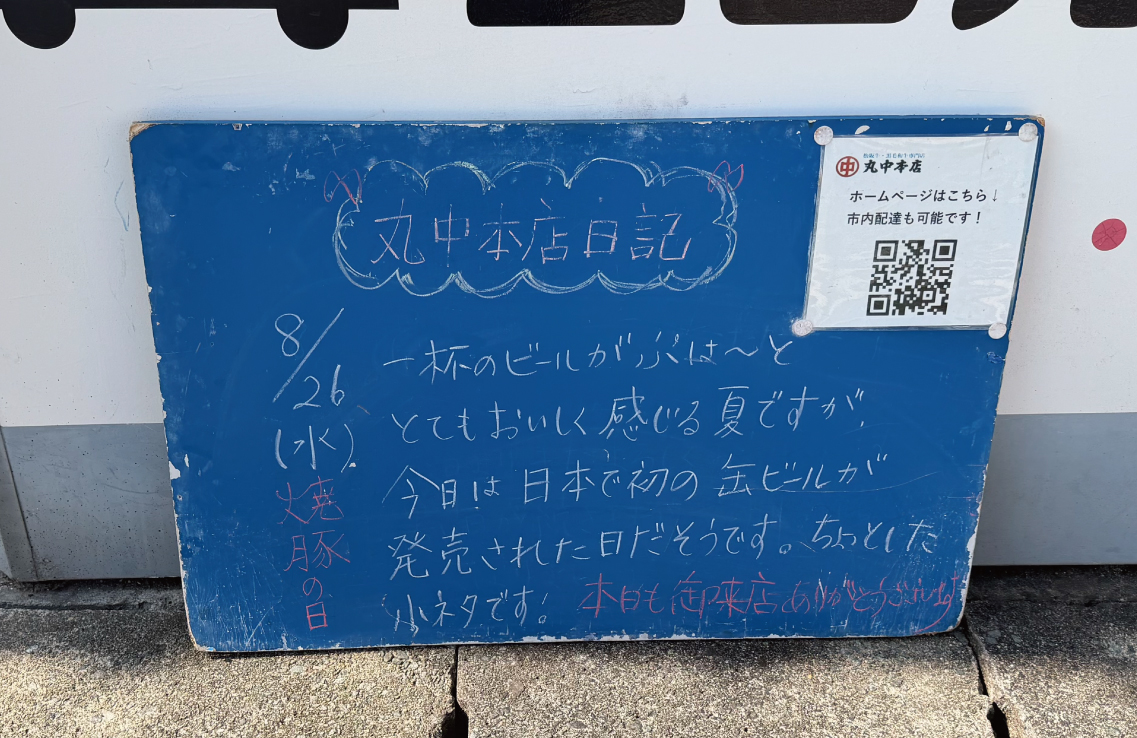 丸中本店
ホームページはこちら↓
市内配達も可能です!
丸中本店日記
8/26
(水)
焼豚の日
一杯のビールがぷは〜と
とてもおいしく感じる夏ですが、
今日は日本で初の缶ビールが
発売された日だそうです。ちょっとした
小ネタです! 本日も御来店ありがとうございます